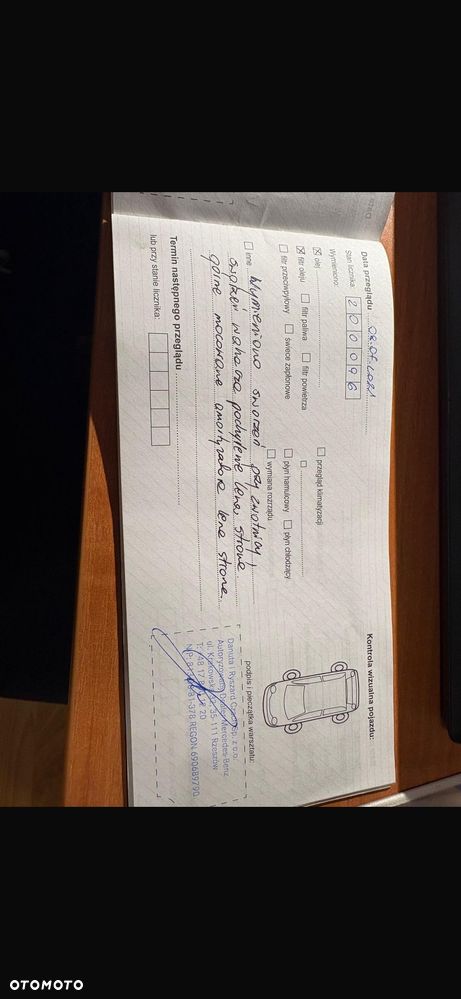 Data przeglądu
Stan licznika: 200096
Wymieniono:
olej
filtr oleju
filtr paliwa
filtr powietrza
filtr przeciwpyłowy
świece zapłonowe
przegląd klimatyzacji
płyn hamulcowy
płyn chłodzący
wymiana rozrządu
inne Wymieniono sworzeń przy zwotnicy
sworzeń wahacza pochylenie lewa strona
górne mocowanie amortyzatora lewa strona
Termin następnego przeglądu
lub przy stanie licznika:
Kontrola wizualna pojazdu:
podpis i pieczątka warsztatu:
Danuta i Ryszard Sp. z o.o.
Autoryzowany Dealer Mercedes-Benz
ul. Krakowska 35-111 Rzeszów
REGON 690689790
OTOMOTO